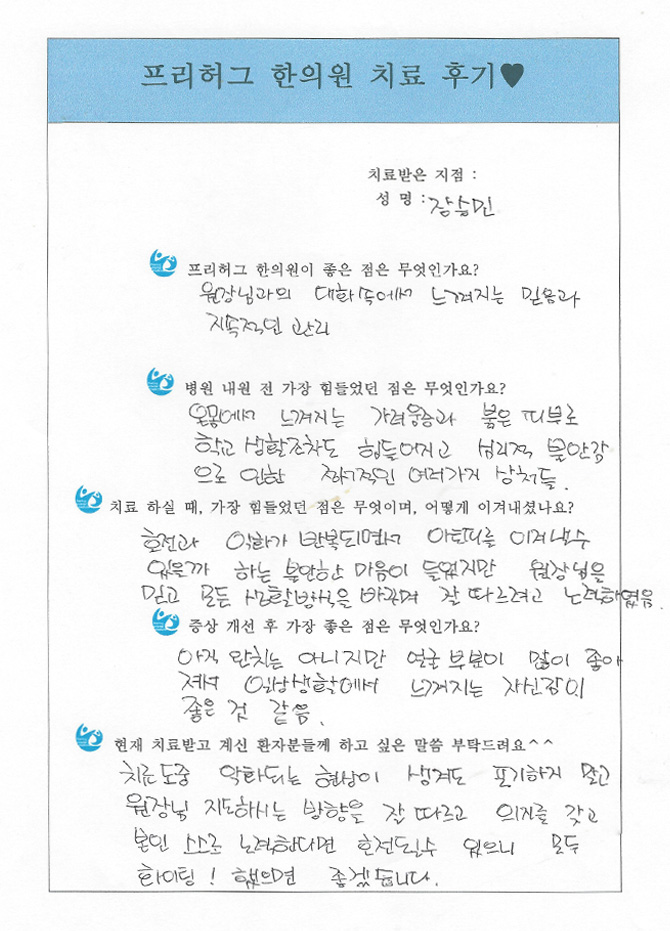 프리허그 한의원 치료 후기♥
치료받은 지점 :
성 명 : 장승민
프리허그 한의원이 좋은 점은 무엇인가요?
원장님과의 대화속에서 느껴지는 믿음과
지속적인 관리
병원 내원 전 가장 힘들었던 점은 무엇인가요?
온몸에서 느껴지는 가려움증과 붉은 피부로
학교 생활조차도 힘들어지고 심리적 불안감
으로 인한 정신적인 여러가지 상처들.
치료 하실 때, 가장 힘들었던 점은 무엇이며, 어떻게 이겨내셨나요?
호전과 악화가 반복되면서 아토피를 이겨낼수
있을까 하는 불안한 마음이 들었지만 원장님을
믿고 모든 생활방식을 바꾸며 잘 따르려고 노력하였음.
증상 개선 후 가장 좋은 점은 무엇인가요?
아직 완치는 아니지만 얼굴 부분이 많이 좋아
져서 일상생활에서 느껴지는 자신감이
좋은 것 같음.
현재 치료받고 계신 환자분들께 하고 싶은 말씀 부탁드려요^^
치료도중 악화되는 현상이 생겨도 포기하지 말고
원장님 지도하시는 방향을 잘 따르고 의지를 갖고
본인 스스로 노력한다면 호전될수 있으니 모두
화이팅! 했으면 좋겠습니다.